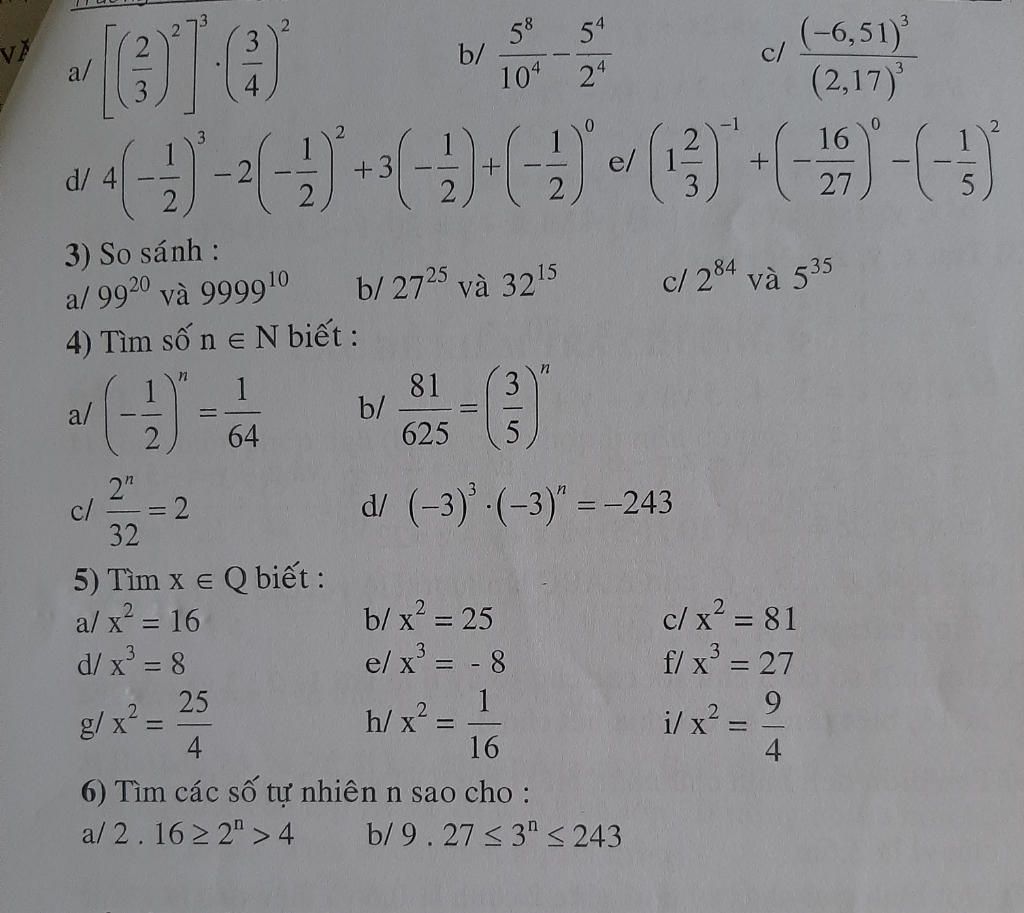 a/ [(2/3)²]³ · (3/4)² b/ 5⁸/10⁴ − 5⁴/2⁴ c/ (−6,51)³/(2,17)³
d/ 4(−1/2)³ − 2(−1/2)² + 3(−1/2) + (−1/2)⁰ e/ (1 2/3)⁻¹ + (−16/27)⁰ − (−1/5)²
3) So sánh :
a/ 99²⁰ và 9999¹⁰ b/ 27²⁵ và 32¹⁵ c/ 2⁸⁴ và 5³⁵
4) Tìm số n ∈ N biết :
a/ (−1/2)ⁿ = 1/64 b/ 81/625 = (3/5)ⁿ
c/ 2ⁿ/32 = 2 d/ (−3)³ · (−3)ⁿ = −243
5) Tìm x ∈ Q biết :
a/ x² = 16 b/ x² = 25 c/ x² = 81
d/ x³ = 8 e/ x³ = - 8 f/ x³ = 27
g/ x² = 25/4 h/ x² = 1/16 i/ x² = 9/4
6) Tìm các số tự nhiên n sao cho :
a/ 2 . 16 ≥ 2ⁿ > 4 b/ 9 . 27 ≤ 3ⁿ ≤ 243